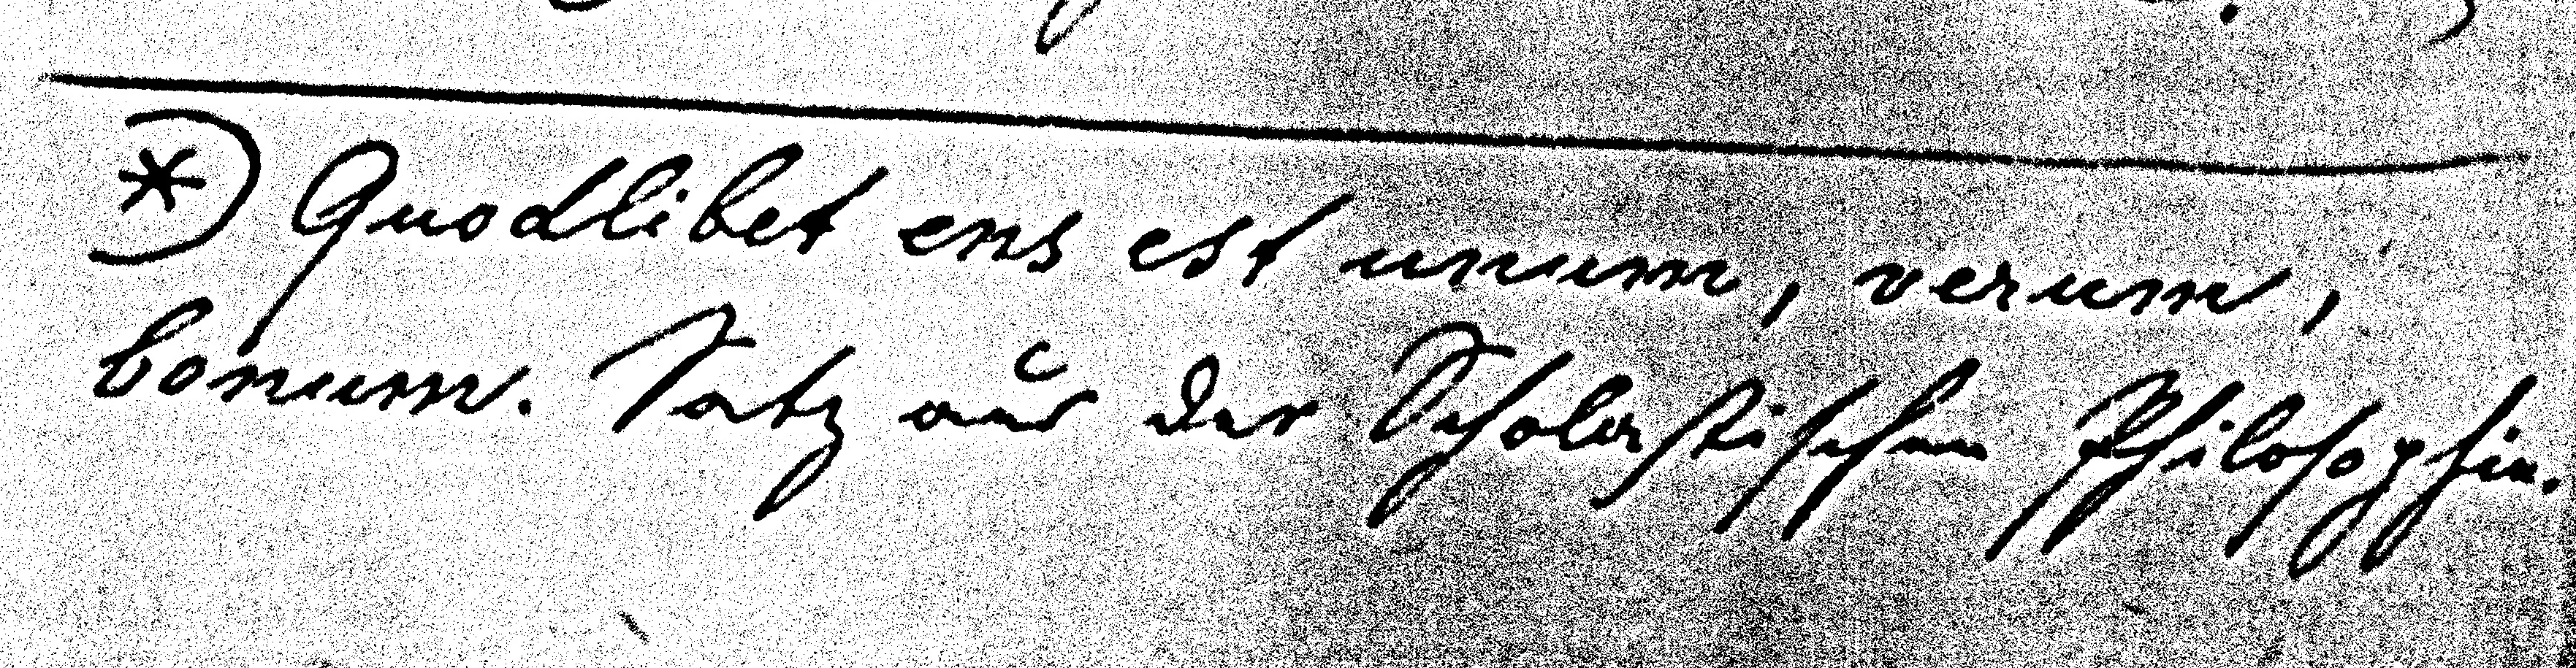 *) Quodlibet ens est unum, verum,
bonum. Satz aus der Scholastischen Philosophie.